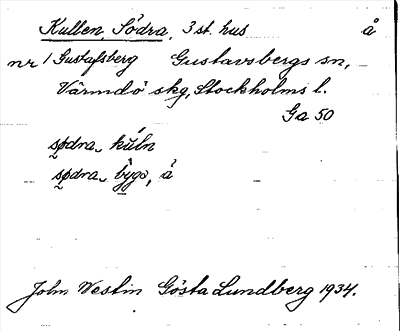 Kullen, Södra, 3 st. hus å
nr 1 Gustafsberg Gustavsbergs sn,
Värmdö skg, Stockholms l.
Ga 50
södra kúln
södra bygd, å
John Westin Gösta Lundberg 1934.